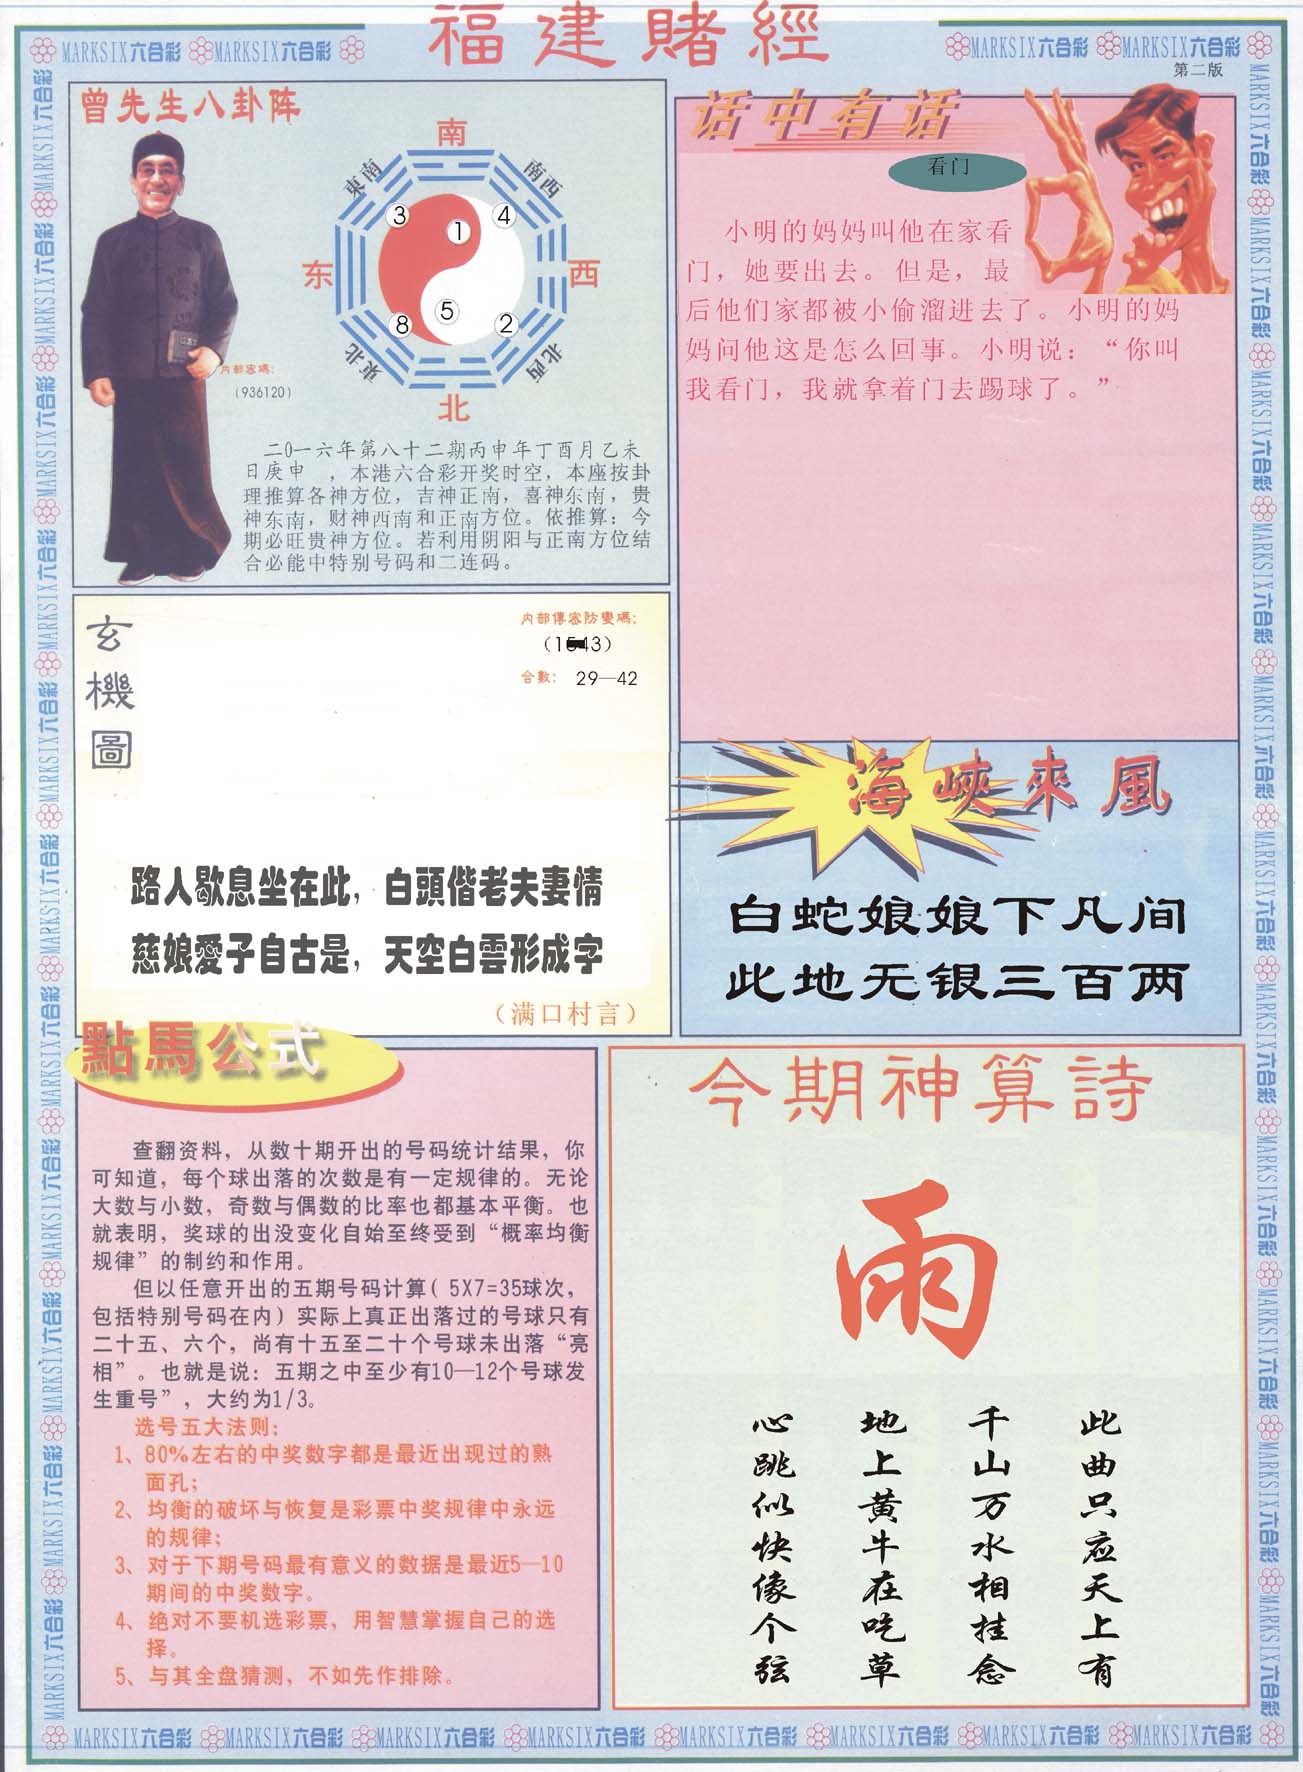 福建賭經
MARKSIX六合彩 MARKSIX六合彩
MARKSIX六合彩 MARKSIX六合彩
第二版
曾先生八卦阵
南
東南
南西
3
1
4
东
西
5
8
2
東北
北西
北
内部密碼：
（936120）
二0一六年第八十二期丙申年丁酉月乙未
日庚申 ，本港六合彩开奖时空，本座按卦
理推算各神方位，吉神正南，喜神东南，贵
神东南，财神西南和正南方位。依推算：今
期必旺贵神方位。若利用阴阳与正南方位结
合必能中特别号码和二连码。
话中有话
看门
小明的妈妈叫他在家看
门，她要出去。但是，最
后他们家都被小偷溜进去了。小明的妈
妈问他这是怎么回事。小明说：“你叫
我看门，我就拿着门去踢球了。”
玄機圖
内部傳密防變碼：
合數： 29—42
路人歇息坐在此，白頭偕老夫妻情
慈娘愛子自古是，天空白雲形成字
（满口村言）
海峽來風
白蛇娘娘下凡间
此地无银三百两
點馬公式
查翻资料，从数十期开出的号码统计结果，你
可知道，每个球出落的次数是有一定规律的。无论
大数与小数，奇数与偶数的比率也都基本平衡。也
就表明，奖球的出没变化自始至终受到“概率均衡
规律”的制约和作用。
但以任意开出的五期号码计算（5X7=35球次，
包括特别号码在内）实际上真正出落过的号球只有
二十五、六个，尚有十五至二十个号球未出落“亮
相”。也就是说：五期之中至少有10—12个号球发
生重号”，大约为1/3。
选号五大法则：
1、80%左右的中奖数字都是最近出现过的熟
面孔；
2、均衡的破坏与恢复是彩票中奖规律中永远
的规律；
3、对于下期号码最有意义的数据是最近5—10
期间的中奖数字。
4、绝对不要机选彩票，用智慧掌握自己的选
择。
5、与其全盘猜测，不如先作排除。
今期神算詩
雨
此曲只应天上有
千山万水相挂念
地上黄牛在吃草
心跳似快像个弦
MARKSIX六合彩 MARKSIX六合彩 MARKSIX六合彩 MARKSIX六合彩 MARKSIX六合彩 MARKSIX六合彩 MARKSIX六合彩 MARKSIX六合彩